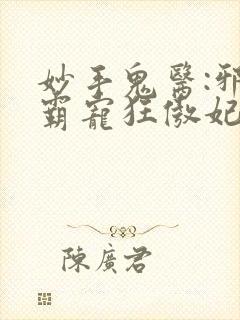 妙手鬼醫:邪
霸寵狂傲妃
陳廣君